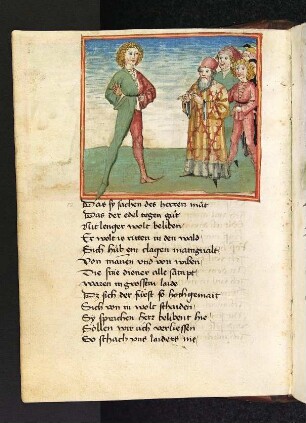 Das sy sachen des herren mut
Das der edel degen gut
Nit lenger wolt beliben
Er wolt ye ritten in den wald
Sich hub ein clagen manigualt
Von mannen und von wiben
Die sine diener alle sampt
waren in grossem laide
Do sich der fürst so hochgemait
Sich von in wolt schaiden
Sy sprachen herr belibent hie
Sollen wir uch verliessen
So schach uns laiders nie